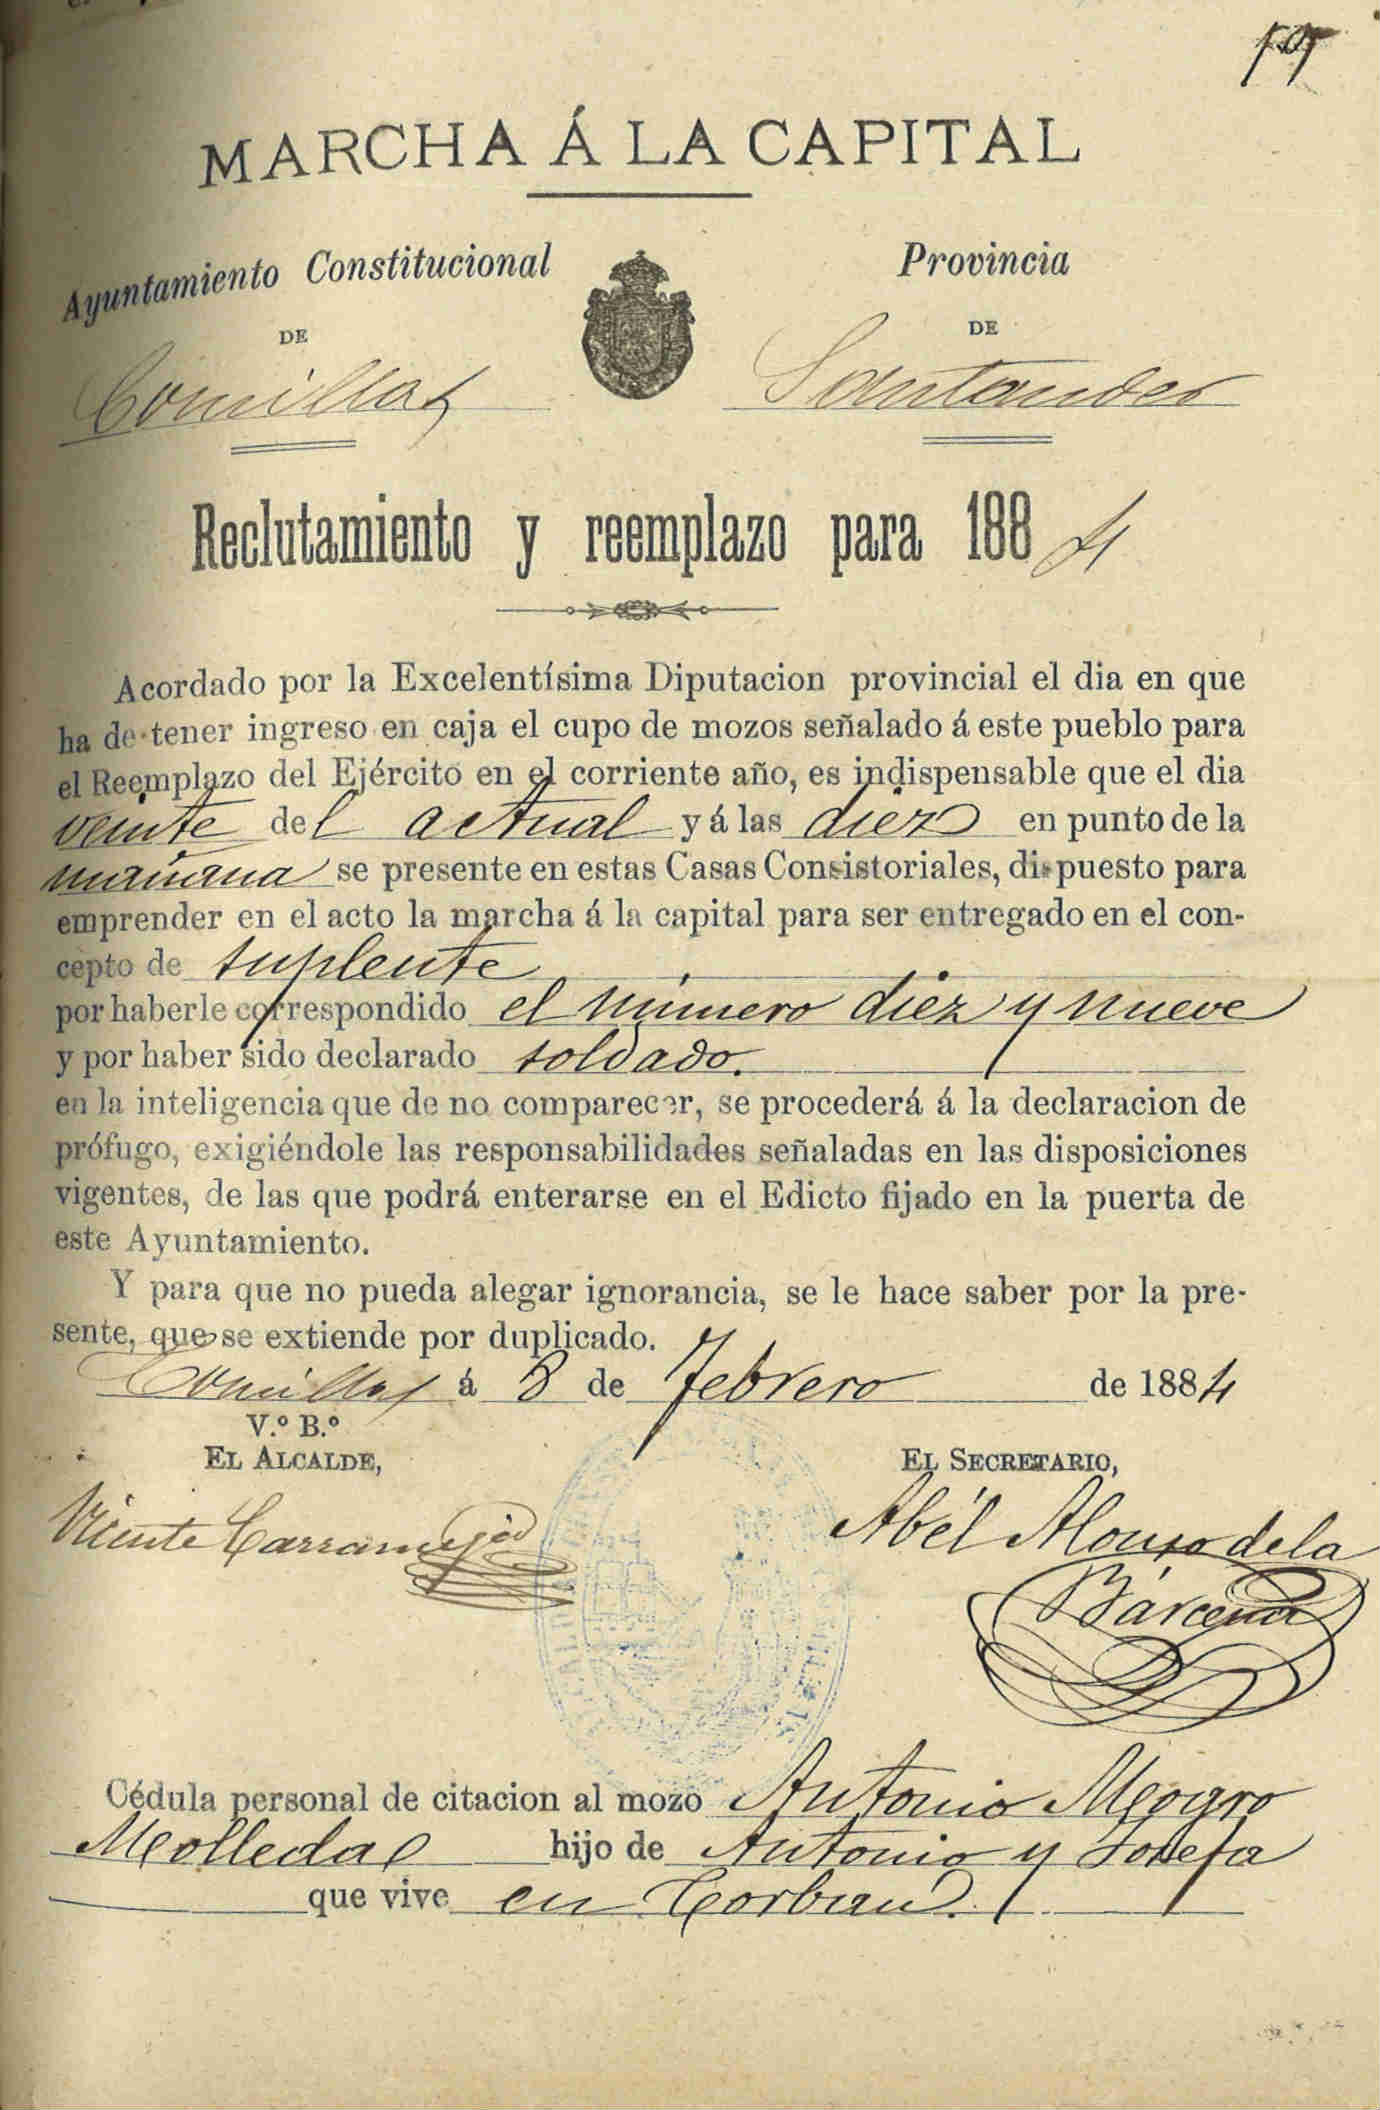 MARCHA Á LA CAPITAL
Ayuntamiento Constitucional
DE
Comillas
Provincia
DE
Santander
Reclutamiento y reemplazo para 1884
Acordado por la Excelentísima Diputacion provincial el dia en que
ha de tener ingreso en caja el cupo de mozos señalado á este pueblo para
el Reemplazo del Ejército en el corriente año, es indispensable que el dia
veinte del actual y á las diez en punto de la
mañana se presente en estas Casas Consistoriales, dispuesto para
emprender en el acto la marcha á la capital para ser entregado en el con-
cepto de suplente
por haberle correspondido el número diez y nueve
y por haber sido declarado soldado.
en la inteligencia que de no comparecer, se procederá á la declaracion de
prófugo, exigiéndole las responsabilidades señaladas en las disposiciones
vigentes, de las que podrá enterarse en el Edicto fijado en la puerta de
este Ayuntamiento.
Y para que no pueda alegar ignorancia, se le hace saber por la pre-
sente, que se extiende por duplicado.
Comillas á 8 de Febrero de 1884
V.º B.º
EL ALCALDE,
Vicente
EL SECRETARIO,
Abél Alonso de la
Bárcena
Cédula personal de citacion al mozo Antonio Mogro
Molleda hijo de Antonio y Josefa
que vive en